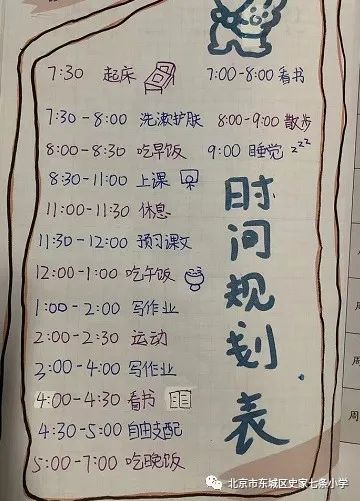 7:30 起床
7:30-8:00 洗漱护肤
8:00-8:30 吃早饭
8:30-11:00 上课
11:00-11:30 休息
11:30-12:00 预习课文
12:00-1:00 吃午饭
1:00-2:00 写作业
2:00-2:30 运动
2:00-4:00 写作业
4:00-4:30 看书
4:30-5:00 自由支配
5:00-7:00 吃晚饭
7:00-8:00 看书
8:00-9:00 散步
9:00 睡觉 zzz
时间规划表
周
周
北京市东城区史家七条小学